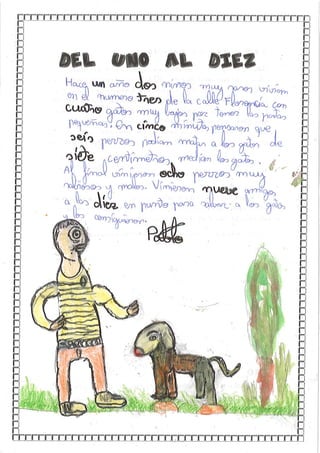 DEL UNO AL DIEZ
Hace un año dos niños muy raros vivían
en el numero tres de la calle Florencia con
cuatro gatos muy bajos por tener las patas
pequeñas. En cinco minutos pensaron que
seis perros podian matar a los gatos de
siete centimetros median los gatos.
Al final vinieron ocho perros muy
rabiosos y malos. Vinieron nueve amigos
a las diez en punto para salvar a los gatos
y los consiguieron.
Pablo